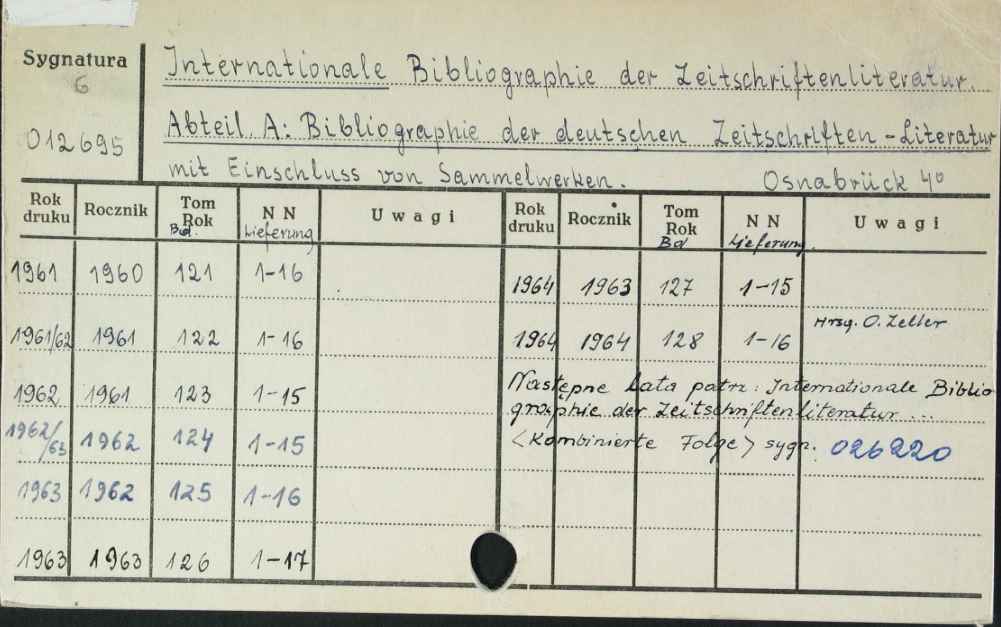 Sygnatura
6
012695
Internationale Bibliographie der Zeitschriftenliteratur.
Abteil A: Bibliographie der deutschen Zeitschriften-Literatur
mit Einschluss von Sammelwerken. Osnabrück 4°
Rok druku Rocznik Tom Rok Bd. NN Lieferung Uwagi Rok druku Rocznik Tom Rok Bd NN Lieferung. Uwagi
1961 1960 121 1-16 1964 1963 127 1-15
1961/62 1961 122 1-16 1964 1964 128 1-16 Hrsg. O. Zeller
1962 1961 123 1-15 Następne lata patrz: Internationale Biblio-
graphie der Zeitschriftenliteratur...
1962/63 1962 124 1-15 <Kombinierte Folge> sygn. 026220
1963 1962 125 1-16
1963 1963 126 1-17